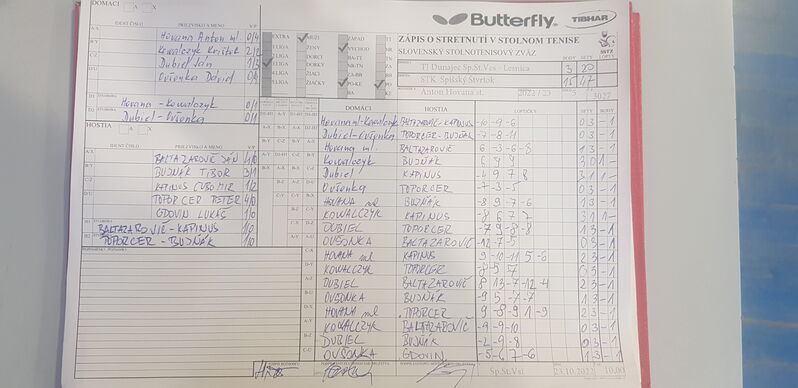 DOMÁCI A X
Butterfly TIBHAR
IDENT ČÍSLO PRIEZVISKO A MENO V/P
ZÁPIS O STRETNUTÍ V STOLNOM TENISE
SLOVENSKÝ STOLNOTENISOVÝ ZVÄZ
SSTZ
EXTRA MUŽI ZÁPAD
ŽENY VÝCHOD
Hovana Anton ml. 0/4
Kowalczyk Krištof 2/2
Dubiel Ján 1/3
Ovšonka Dávid 0/4
TJ Dunajec Sp.St.Ves - Lesnica 3 20
STK Spišský Štvrtok 15 47
Anton Hovana st. 2022 / 23
Hovana - Kowalczyk 0/1
Dubiel - Ovšonka 0/1
HOSTIA A X
IDENT ČÍSLO PRIEZVISKO A MENO V/P
BALTAZAROVIČ JÁN 4/0
BUJŇÁK TIBOR 3/1
KAPINUS ĽUBOMÍR 1/2
TOPORCER PETER 4/0
GDOVIN LUKÁŠ 1/0
BALTAZAROVIČ - KAPINUS 1/0
TOPORCER - BUJŇÁK 1/0
DOMÁCI HOSTIA LOPTIČKY SETY BODY
Hovana ml-Kowalczyk BALTAZAROVIČ-KAPINUS -10 -9 -6 0 3 - 1
Dubiel-Ovšonka TOPORCER-BUJŇÁK -7 -8 -11 0 3 - 1
Hovana ml BALTAZAROVIČ 6 -3 -6 -8 1 3 - 1
Kowalczyk BUJŇÁK 6 9 9 3 0 1 -
Dubiel KAPINUS -4 9 7 8 3 1 1 -
Ovšonka TOPORCER -7 -3 -5 0 3 - 1
HOVANA ml BUJŇÁK -8 9 -7 -6 1 3 - 1
KOWALCZYK KAPINUS -8 6 7 7 3 1 1 -
DUBIEL TOPORCER -7 9 -8 -8 1 3 - 1
OVŠONKA BALTAZAROVIČ -12 -7 -5 0 3 - 1
HOVANA ml KAPINUS 9 -10 -11 5 -6 2 3 - 1
KOWALCZYK TOPORCER -8 -5 -7 0 3 - 1
DUBIEL BALTAZAROVIČ 8 13 -7 -12 -4 2 3 - 1
OVŠONKA BUJŇÁK -9 5 -7 -7 1 3 - 1
HOVANA ml TOPORCER 9 -8 -9 1 -9 2 3 - 1
KOWALCZYK BALTAZAROVIČ -9 -9 -10 0 3 - 1
DUBIEL BUJŇÁK -2 -9 -8 0 3 - 1
OVŠONKA GDOVIN -5 -6 7 -6 1 3 - 1
Sp.St.Ves 23.10.2022 10,00